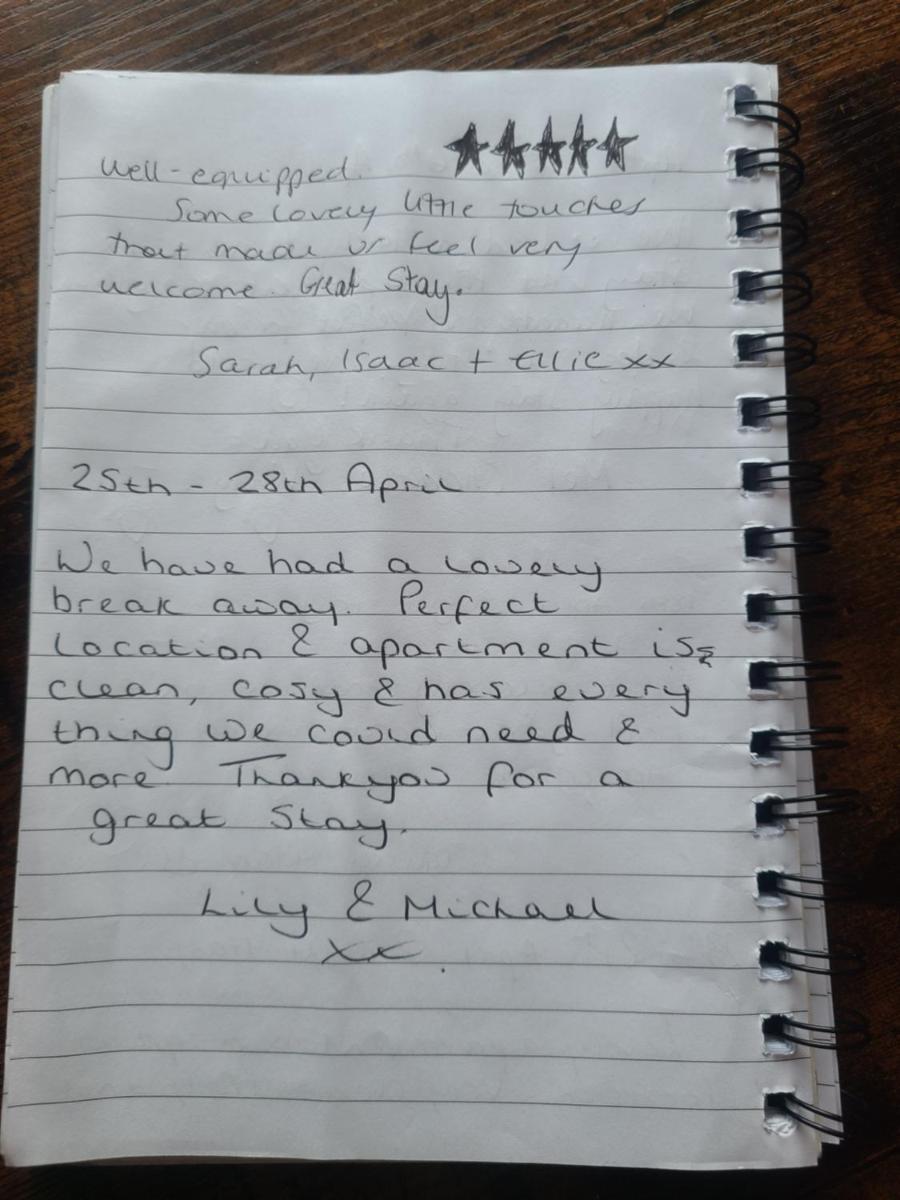 ★★★★★
well-equipped.
Some lovely little touches
that made us feel very
welcome. Great Stay.
Sarah, Isaac + Ellie xx
25th - 28th April
We have had a lovely
break away. Perfect
location & apartment is
clean, cosy & has every
thing we could need &
more Thankyou for a
great stay.
Lily & Michael
xx.